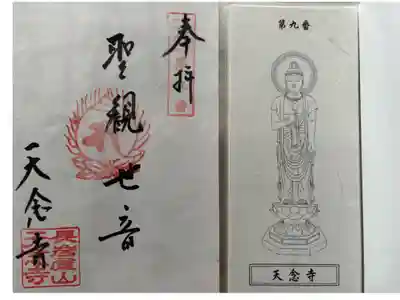 奉拝
聖観世音
天念寺
長岩屋山
天念寺
第九番
天念寺